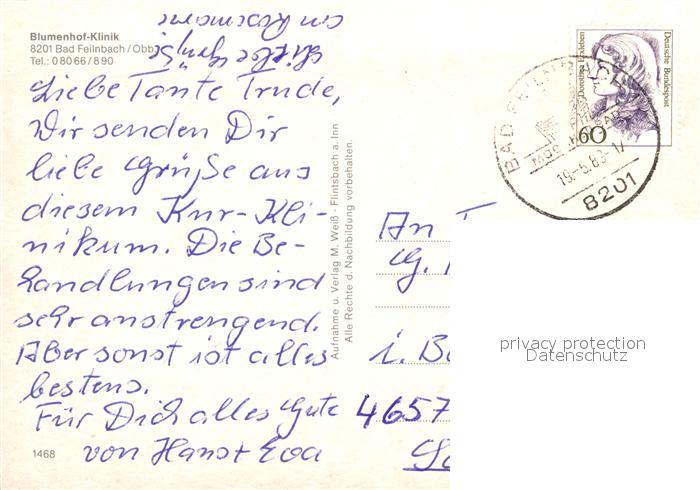 Blumenhof-Klinik
8201 Bad Feilnbach / Obb.
Tel.: 0 80 66 / 8 90
Liebe Tante Trude,
Wir senden Dir
liebe Grüße aus
diesem Kur-Kli-
nikum. Die Be-
handlungen sind
sehr anstrengend.
Aber sonst ist alles
bestens.
Für Dich alles Gute
von Hans + Eva
Herzliche Grüße
an Rosemarie
1468
Aufnahme u. Verlag M. Weiß · Flintsbach a. Inn
Alle Rechte d. Nachbildung vorbehalten.
Deutsche Bundespost
Dorothea Erxleben
60
BAD FEILNBACH
8201
An
G.
i.
4657
privacy protection
Datenschutz